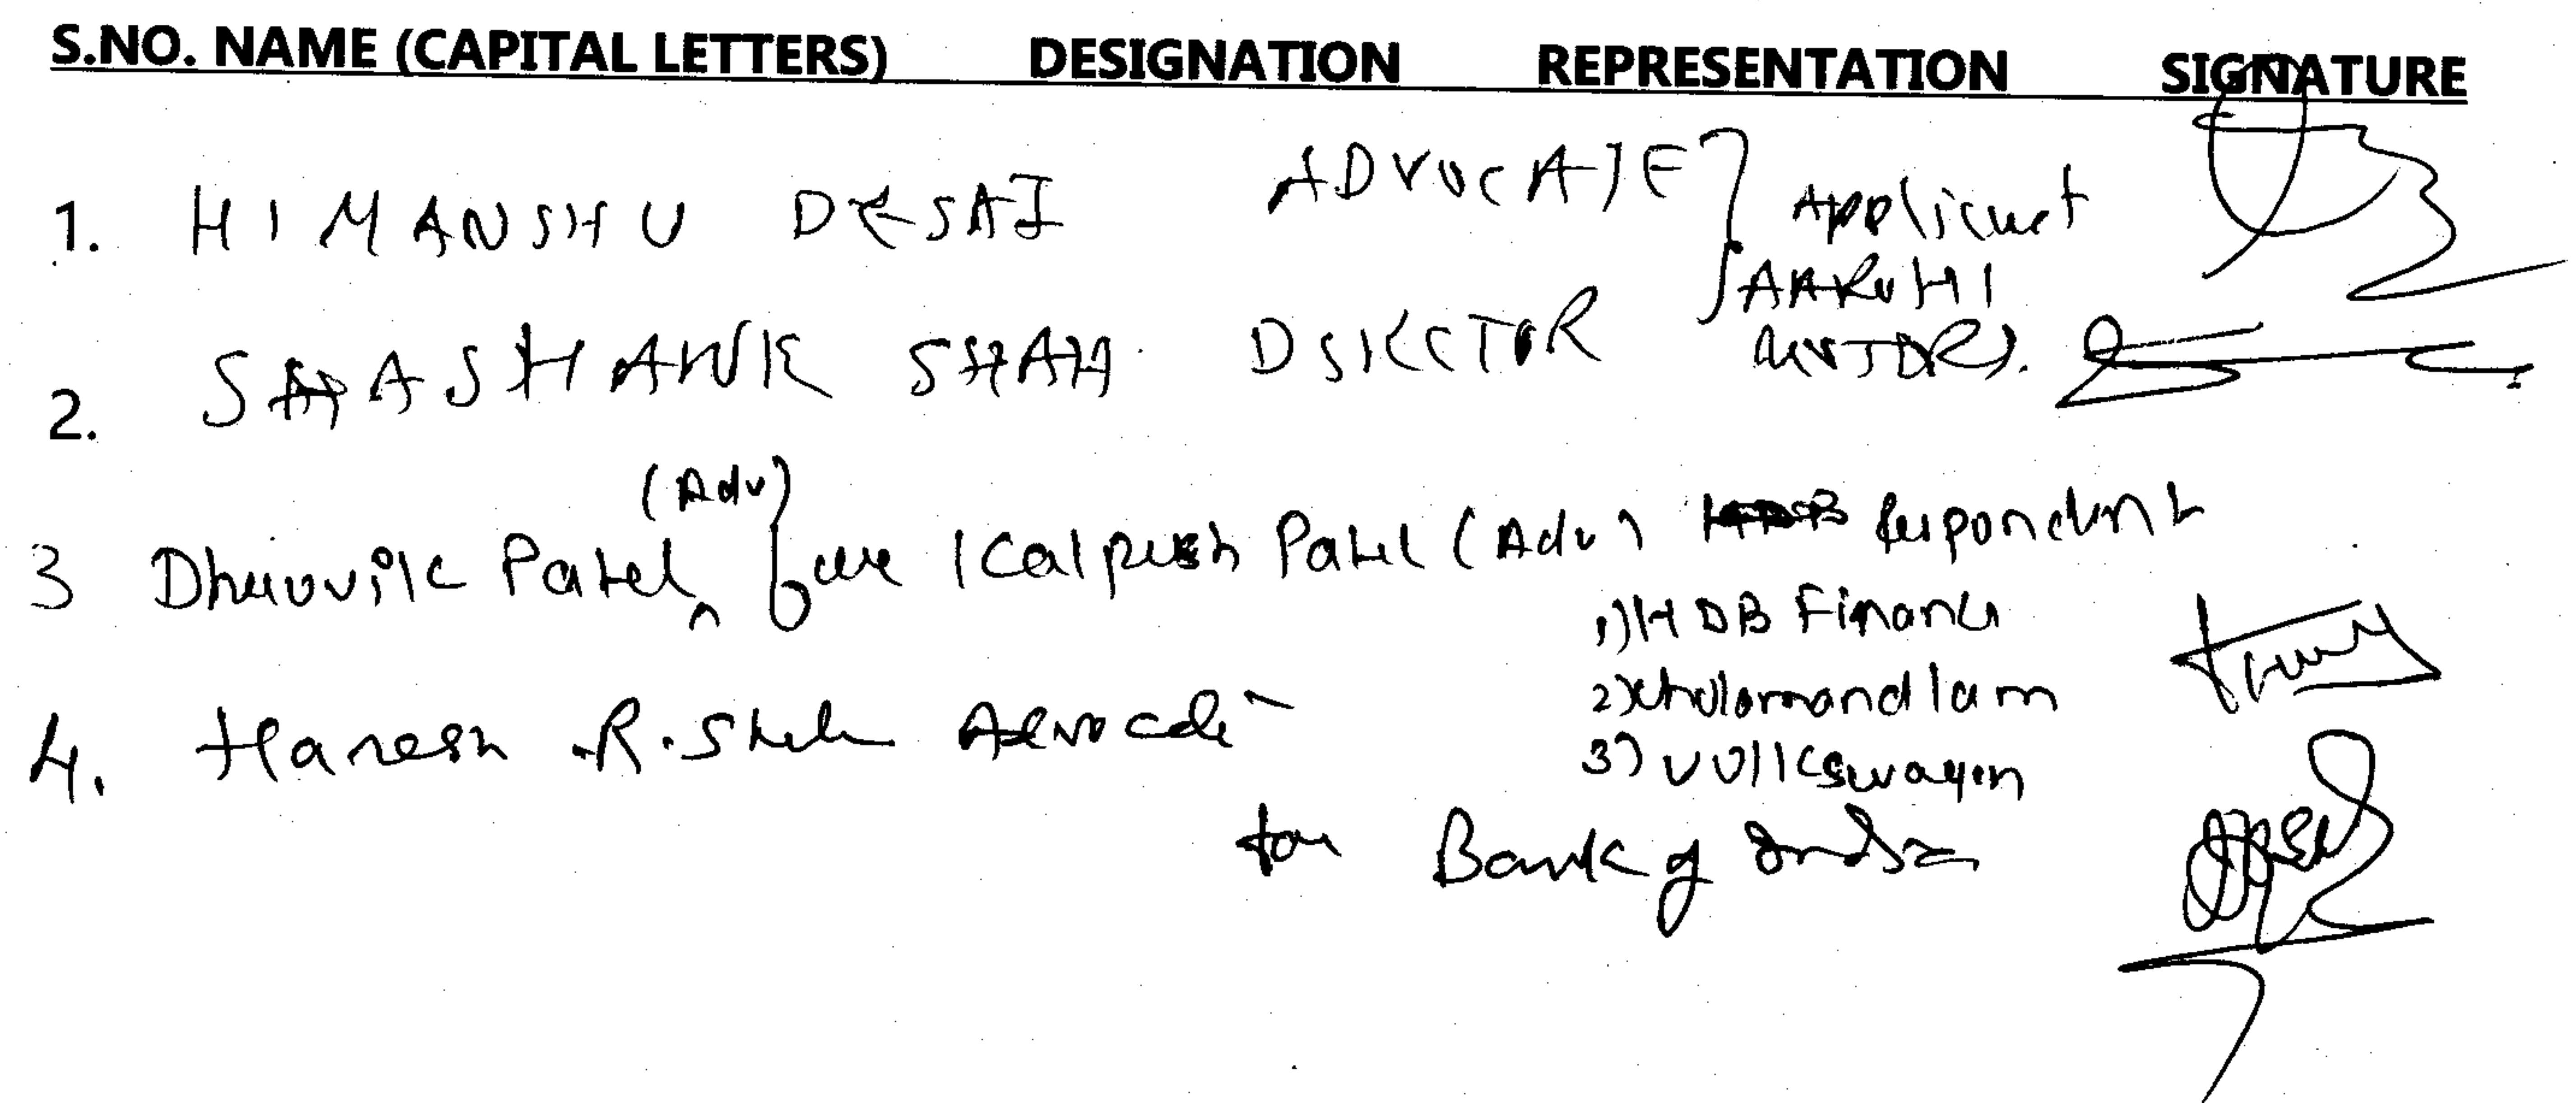 S.NO. NAME (CAPITAL LETTERS) DESIGNATION REPRESENTATION SIGNATURE
1. HIMANSHU DESAI ADVOCATE } Applicant
AAROHI
2. SHASHANK SHAH DIRECTOR MOTORS.
(Adv)
3 Dhruvik Patel for Kalpesh Patel (Adv) HDB Respondent
1) HDB Finance
2) Cholamandlam
4. Haresh R. Shah Advocate
3) Volkswagen
for Bank of India